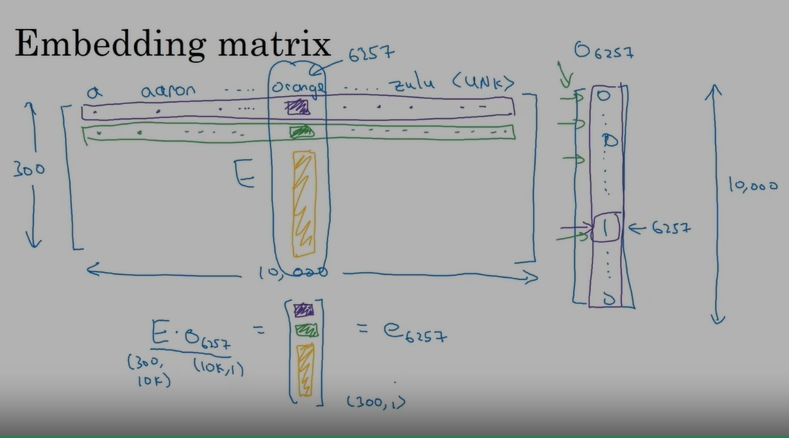 Embedding matrix
6257
O6257
a aaron .... orange .... zulu <UNK>
300
E
0
0
1 ← 6257
0
10,000
10,000
E · O6257 = [ ] = e6257
(300, 10K) (10K, 1)
(300, 1)